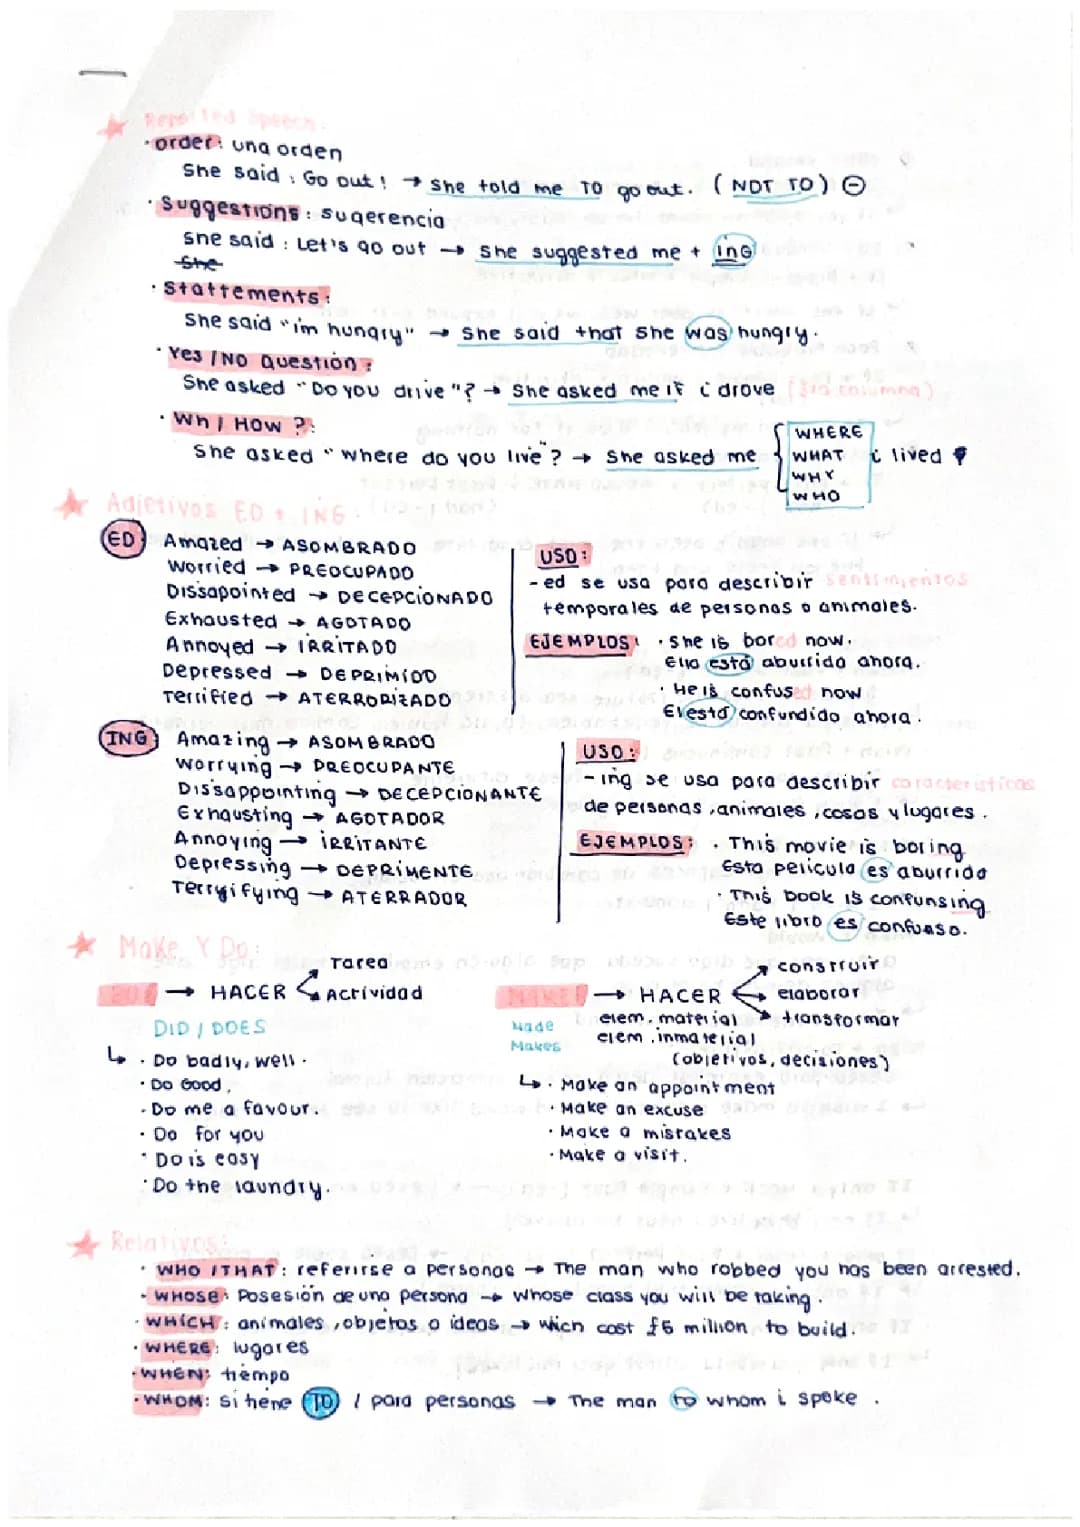 Reported Speech:
· order: una orden
She said : Go out! → She told me TO go out. ( NOT TO ) ⊖
· Suggestions : sugerencia
She said : Let's go out → She suggested me + ING
She
· Stattements :
She said "im hungry" → She said that she was hungry.
· Yes / NO Question :
She asked "Do you drive"? → She asked me if i drove (3ra columna)
· Wh / HOW ?:
She asked "where do you live"? → She asked me WHERE WHAT WHY WHO i lived
Adjetivos ED + ING
ED Amazed → ASOMBRADO
Worried → PREOCUPADO
Dissapointed → DECEPCIONADO
Exhausted → AGOTADO
Annoyed → IRRITADO
Depressed → DEPRIMIDO
Terrified → ATERRORIZADO
USO:
- ed se usa para describir sentimientos
temporales de personas o animales.
EJEMPLOS: · She is bored now.
Ella está aburrida ahora.
· He is confused now
El está confundido ahora.
ING Amazing → ASOMBRADO
Worrying → PREOCUPANTE
Dissappointing → DECEPCIONANTE
Exhausting → AGOTADOR
Annoying → IRRITANTE
Depressing → DEPRIMENTE
Terryifying → ATERRADOR
USO:
- ing se usa para describir caracteristicas
de personas, animales, cosas y lugares.
EJEMPLOS: · This movie is boring
Esta pelicula es aburrida
· This book is confunsing
Este libro es confuso.
Make Y Do:
→ HACER Tarea Actividad
DID / DOES
↳ · Do badly, well.
· Do Good.
· Do me a favour.
· Do for you
· Do is easy
· Do the laundry.
MAKE → HACER construir elaborar transformar
Made
Makes
elem. material
elem. inmaterial
(objetivos, decisiones)
↳ · Make an appointment
· Make an excuse
· Make a mistakes
· Make a visit.
Relativos:
· WHO / THAT : referirse a personas → The man who robbed you has been arrested.
· WHOSE: Posesión de una persona → Whose class you will be taking.
· WHICH : animales, objetos o ideas → wich cost £6 million to build.
· WHERE: lugares
· WHEN: tiempo
· WHOM: si tiene TO / para personas → The man to whom i spoke .